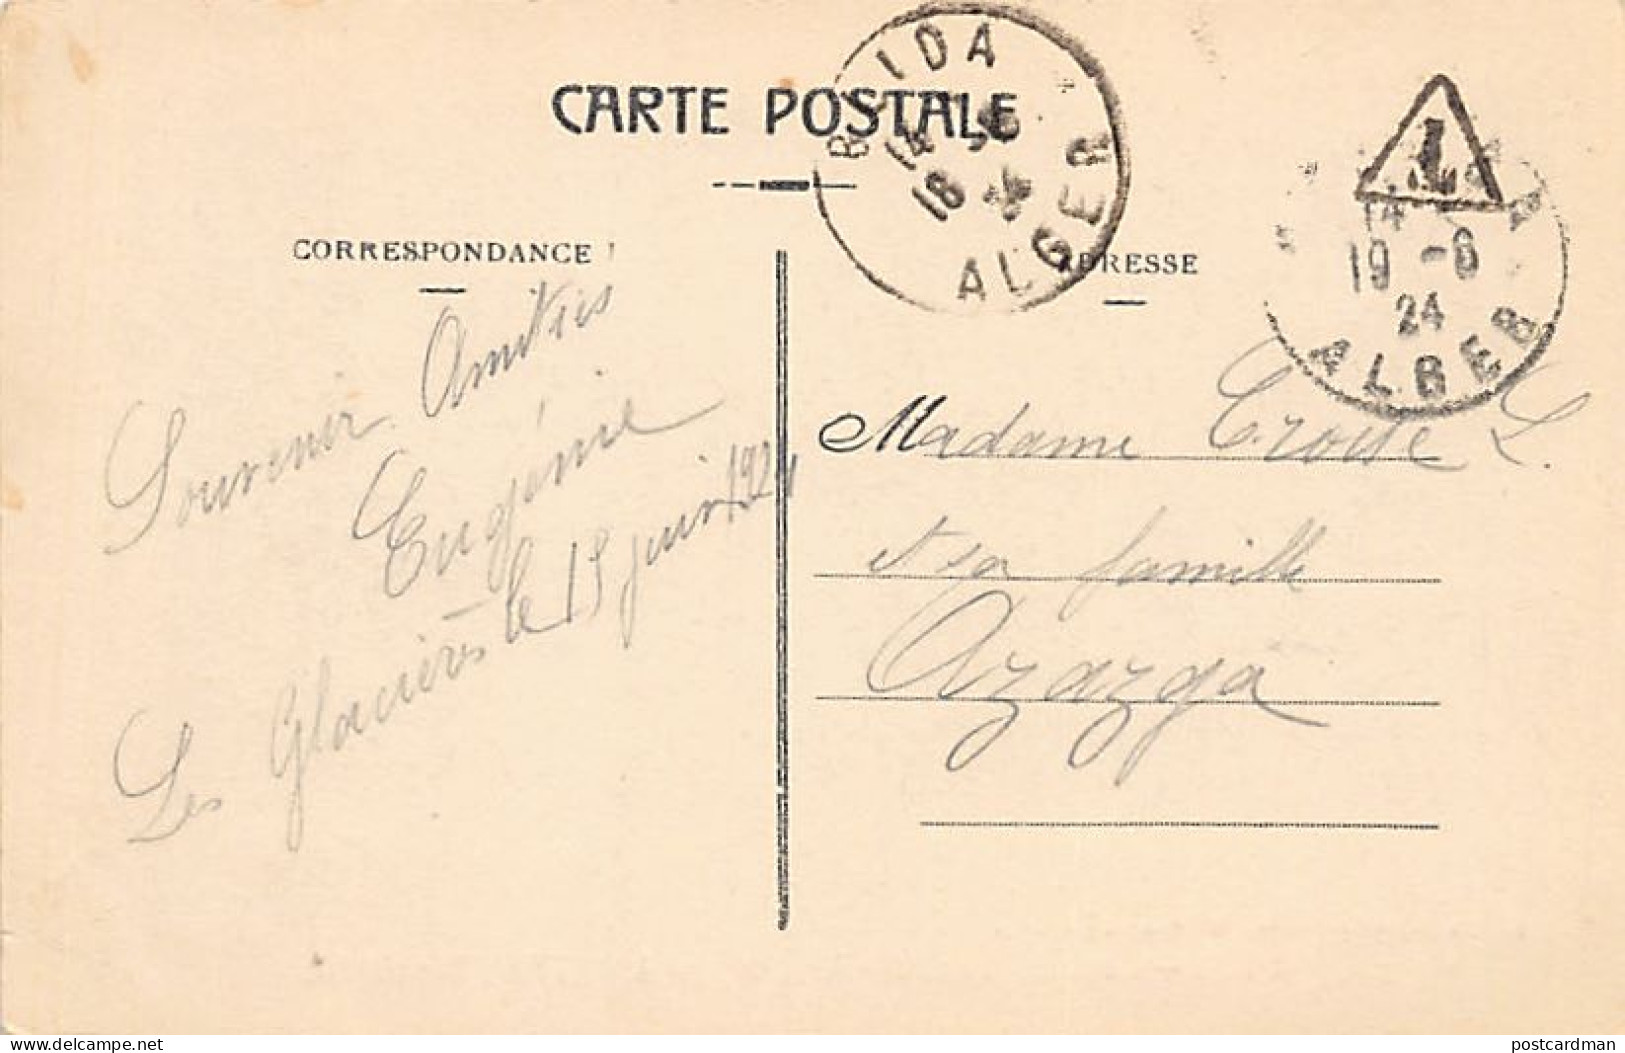 CARTE POSTALE
CORRESPONDANCE
ADRESSE
BLIDA
ALGER
14
18
T
14
19 -6
24
ALGER
Souvenir Amitiés
Eugénie
Les Glacières le 15 juin 1924
Madame Croise L.
et sa famille
Azazga
delcampe.net
postcardman